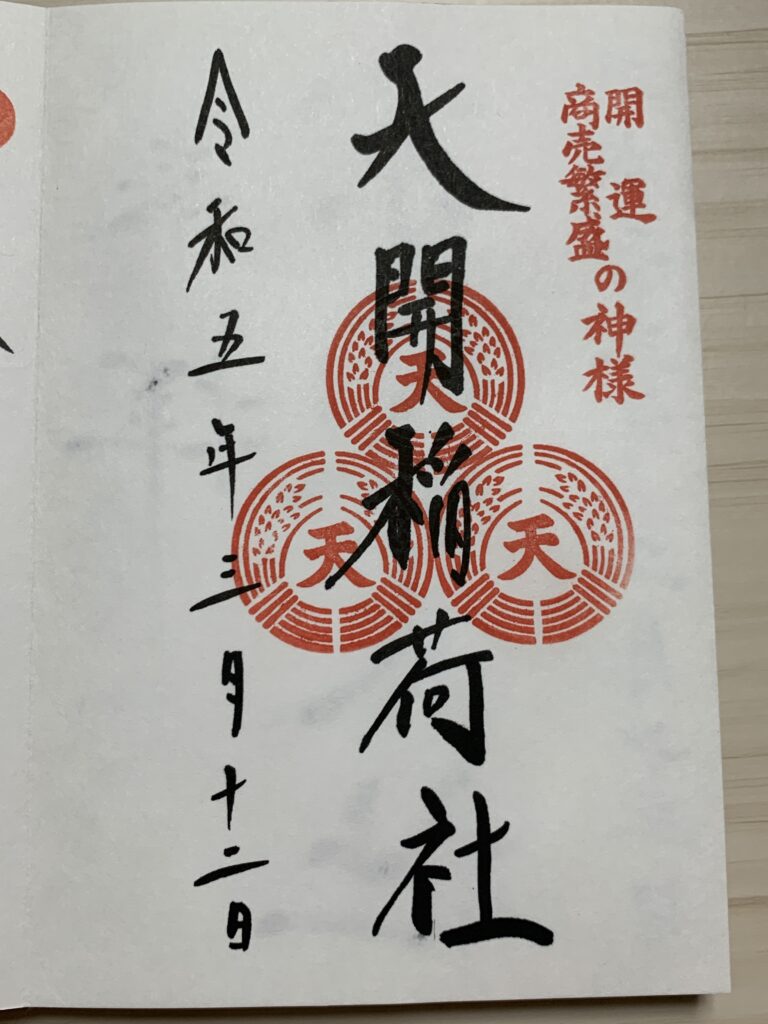 開運
商売繁盛
の神様
天開稲荷社
天
天
天
令和五年三月十二日